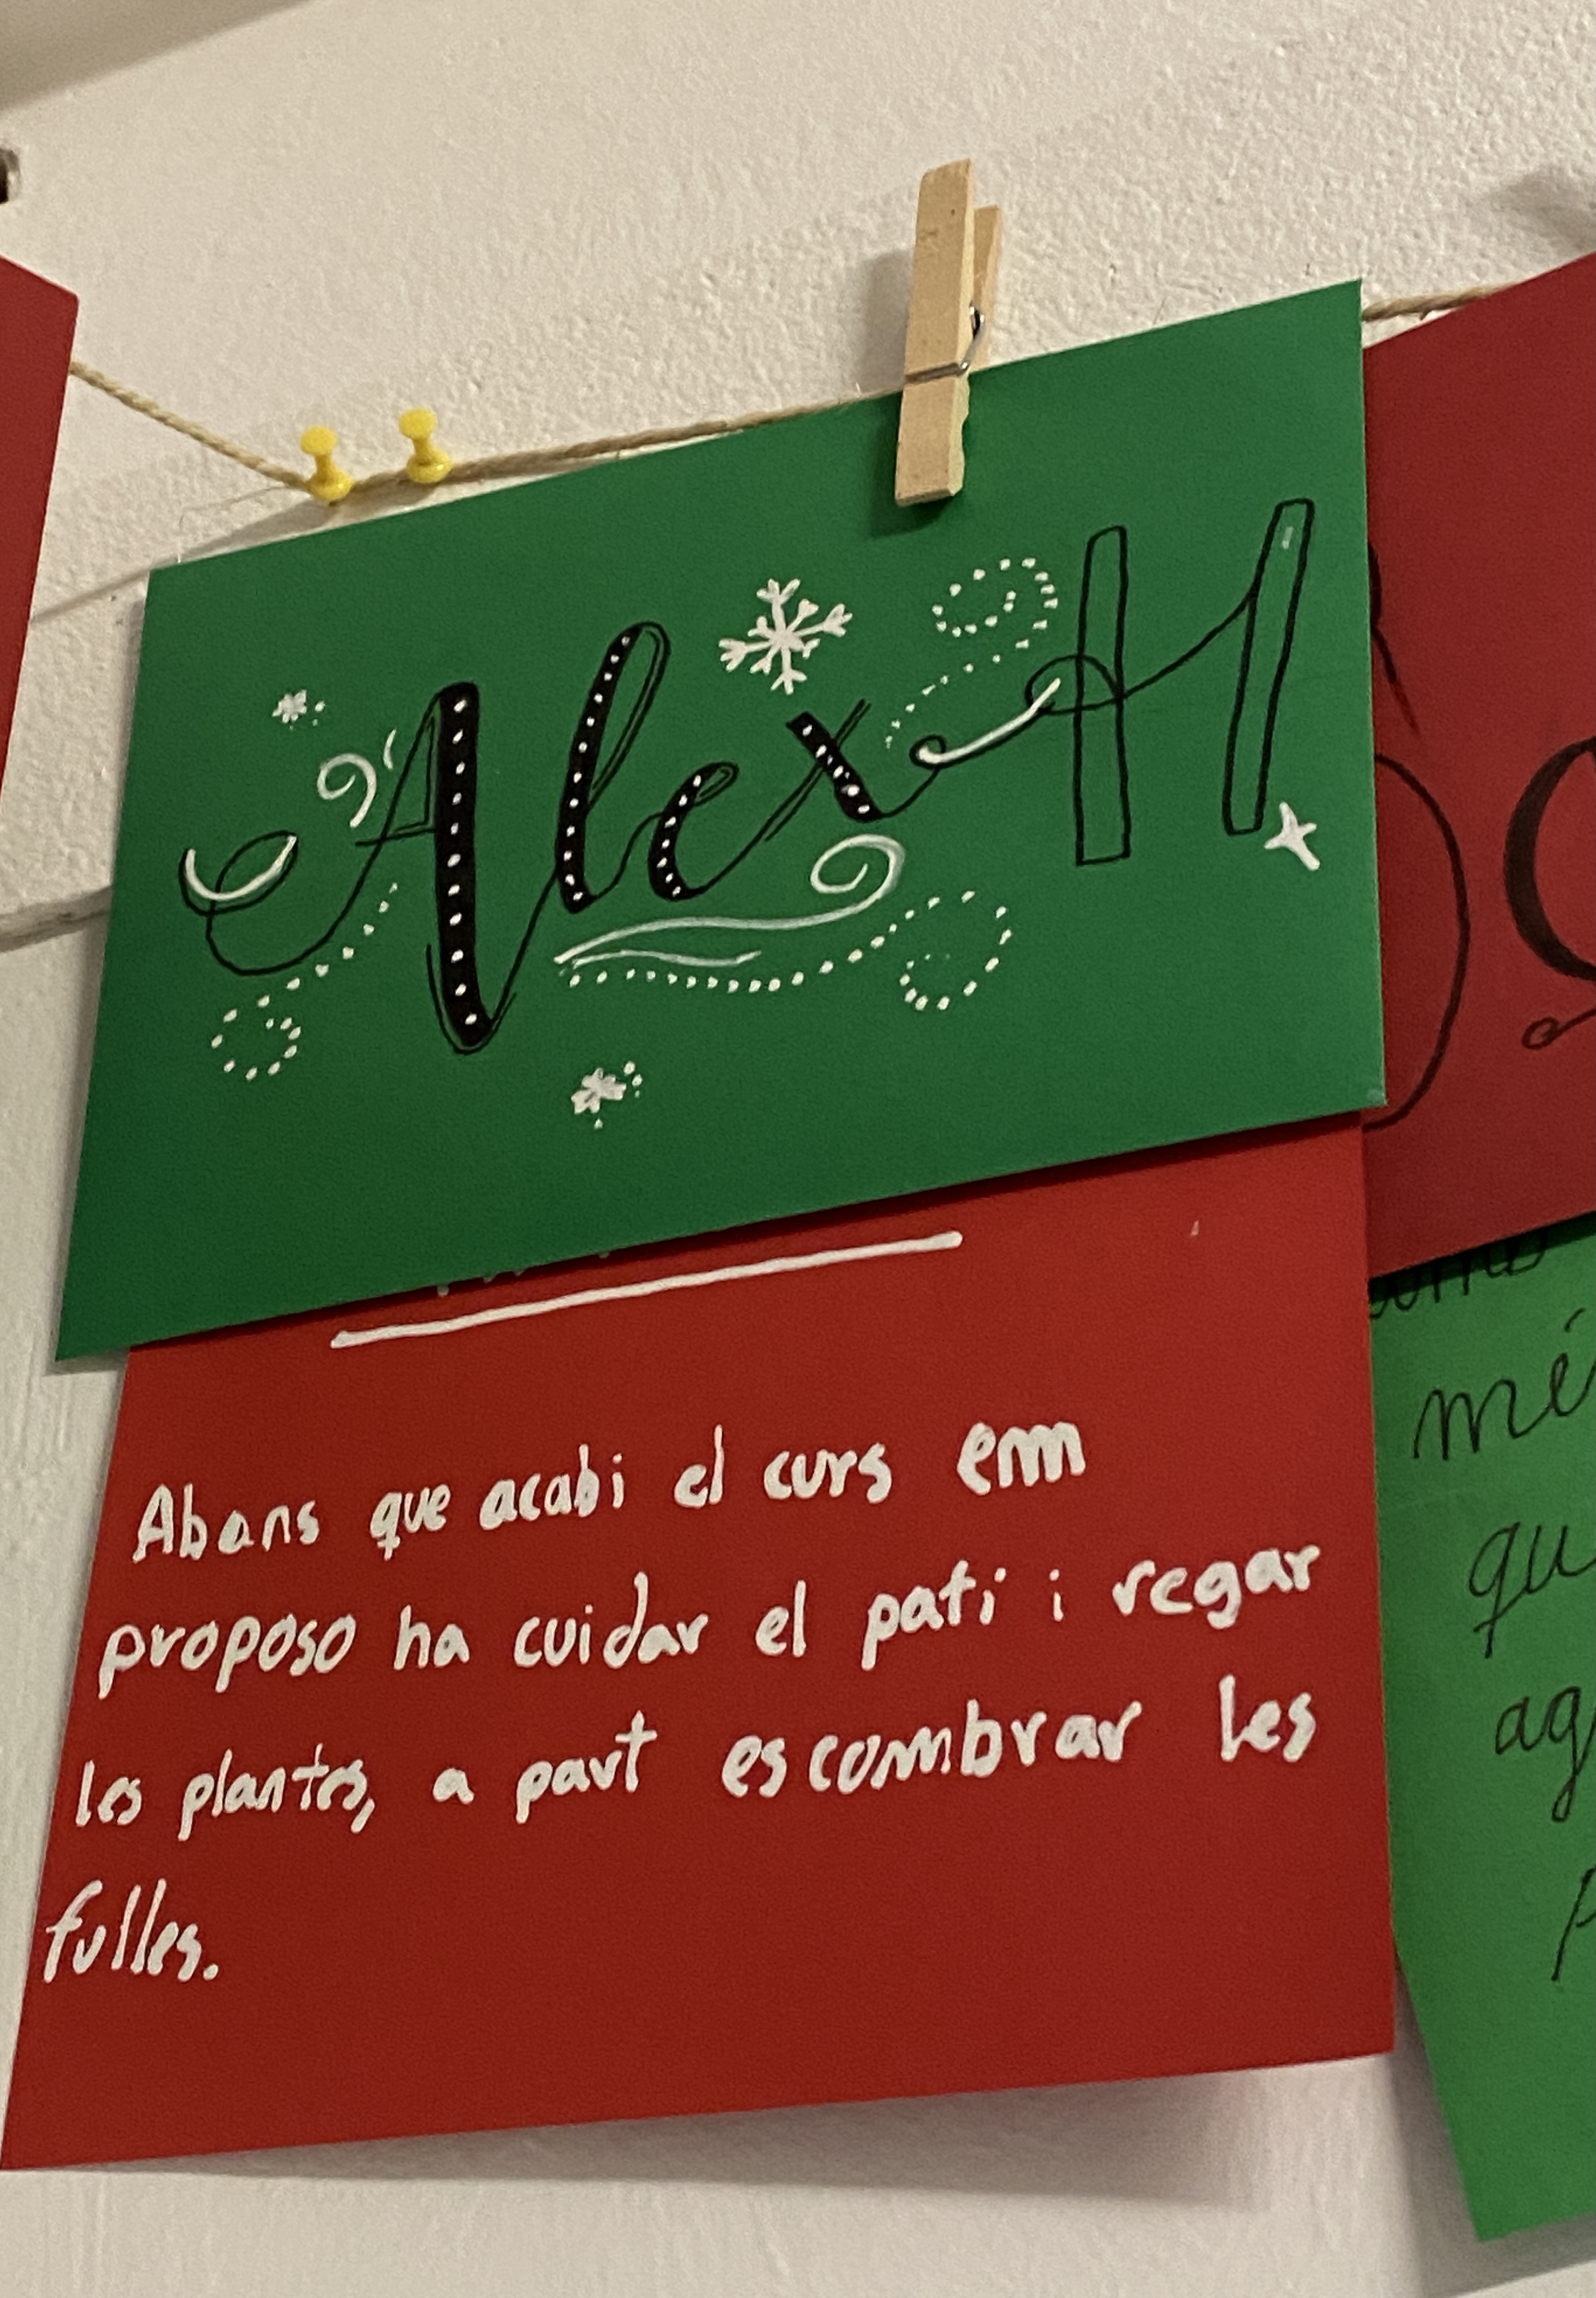 Alex H
Abans que acabi el curs em
proposo ha cuidar el pati i regar
les plantes, a part escombrar les
fulles.
mé
qu
ag